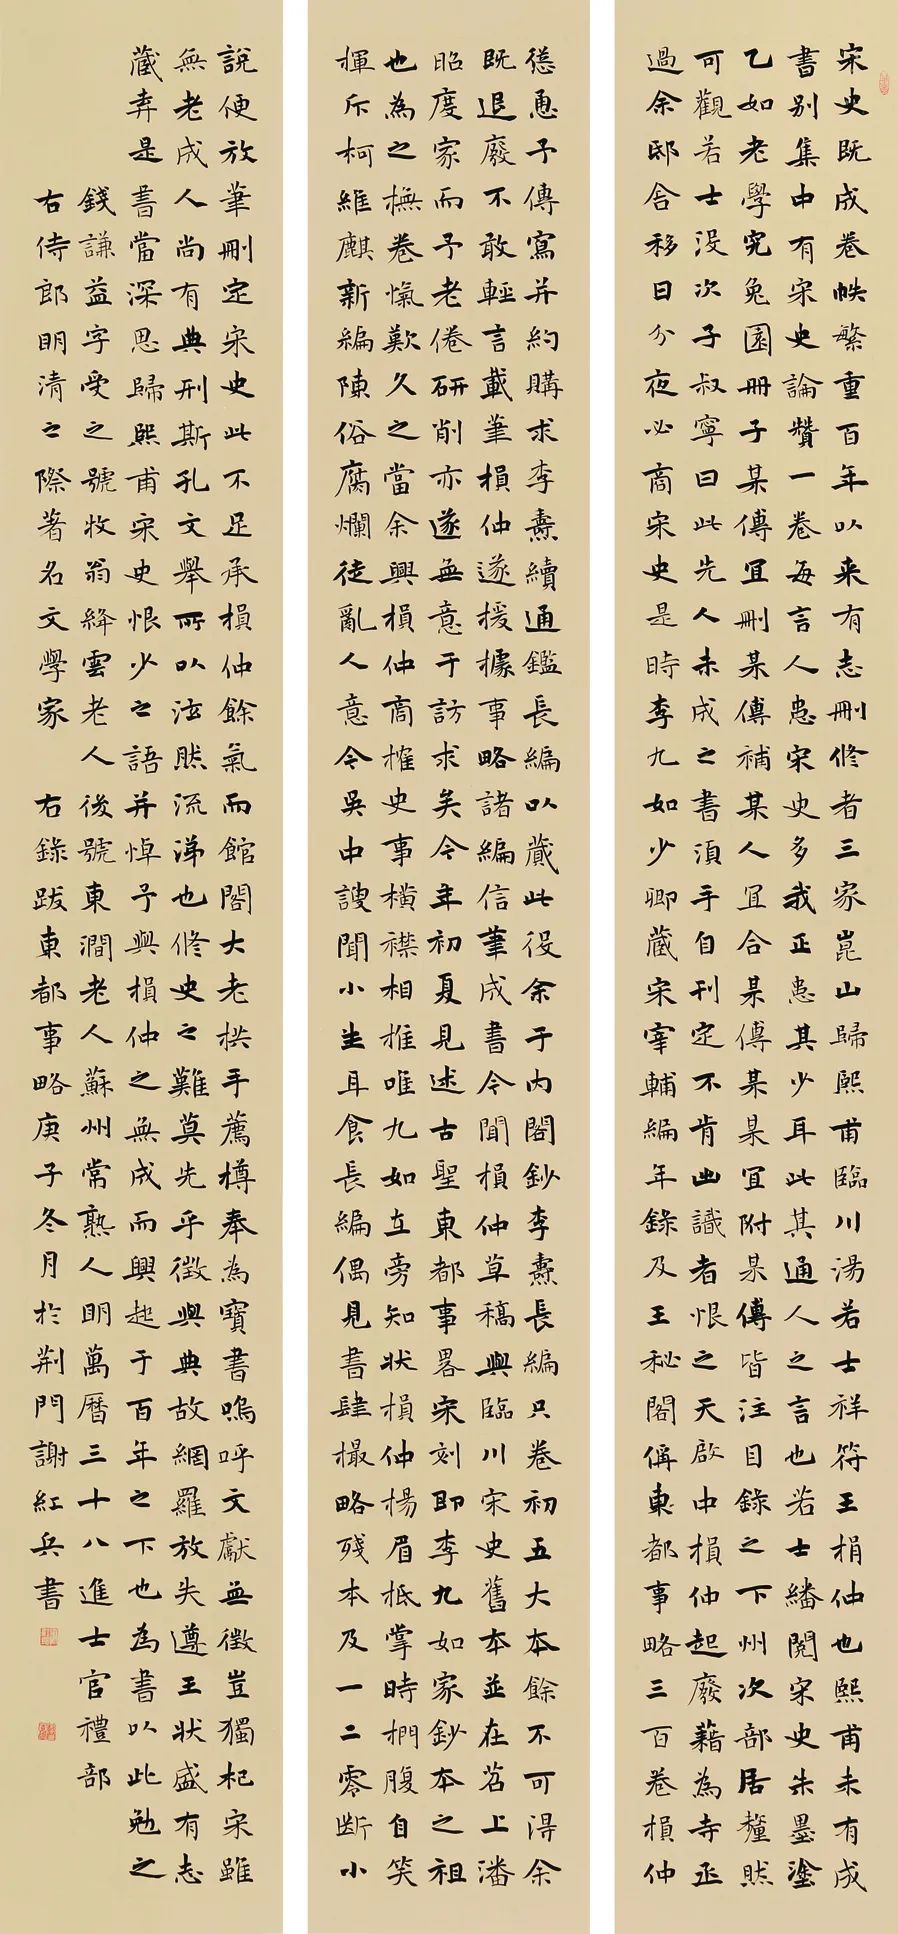 宋史既成卷帙繁重百年以来有志刪修者三家崑山歸熙甫臨川湯若士祥符王損仲也熙甫未有成
書别集中有宋史論贊一卷每言人患宋史多我正患其少耳此其通人之言也若士繙閱宋史朱墨塗
乙如老學究兔園冊子某傳宜刪某傳補某人宜合某傳某某宜附某傳皆注目錄之下州次部居釐然
可觀若士没次子叔寧曰此先人未成之書須手自刊定不肯出識者恨之天啟中損仲起廢藉為寺丞
過余邸舍移日分夜必商宋史是時李九如少卿藏宋宰輔編年錄及王秘閣偁東都事略三百卷損仲
慫恿予傳寫并約購求李燾續通鑑長編以蕆此役余于内閣鈔李燾長編只卷初五大本餘不可得余
既退廢不敢輕言載筆損仲遂援據事略諸編信筆成書今聞損仲草稿與臨川宋史舊本並在苕上潘
昭度家而予老倦研削亦遂無意于訪求矣今年初夏見述古聖東都事畧宋刻即李九如家鈔本之祖
也為之撫卷愾歎久之當余與損仲商榷史事横襟相推唯九如在旁知狀損仲楊眉柢掌時捫腹自笑
揮斥柯維麒新編陳俗腐爛徒亂人意今吳中謏聞小生耳食長編偶見書肆撮略残本及一二零斷小
說便放筆刪定宋史此不足承損仲餘氣而館閣大老拱手薦樽奉為寶書嗚呼文獻無徵豈獨杞宋雖
無老成人尚有典刑斯孔文舉所以泫然流涕也修史之難莫先乎徵與典故網羅放失遵王狀盛有志
藏弆是書當深思歸熙甫宋史恨少之語并悼予與損仲之無成而興起于百年之下也為書以此勉之
錢謙益字受之號牧翁絳雲老人後號東澗老人蘇州常熟人明萬曆三十八進士官禮部
右侍郎明清之際著名文學家 右錄跋東都事略庚子冬月於荆門謝紅兵書